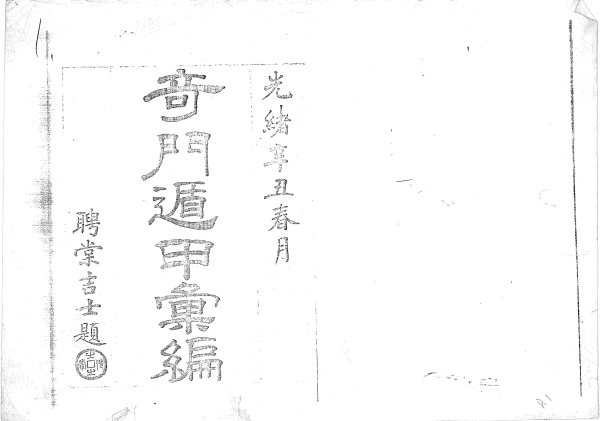 光緒辛丑春月
奇門遁甲彙編
聘棠吉士題
R1